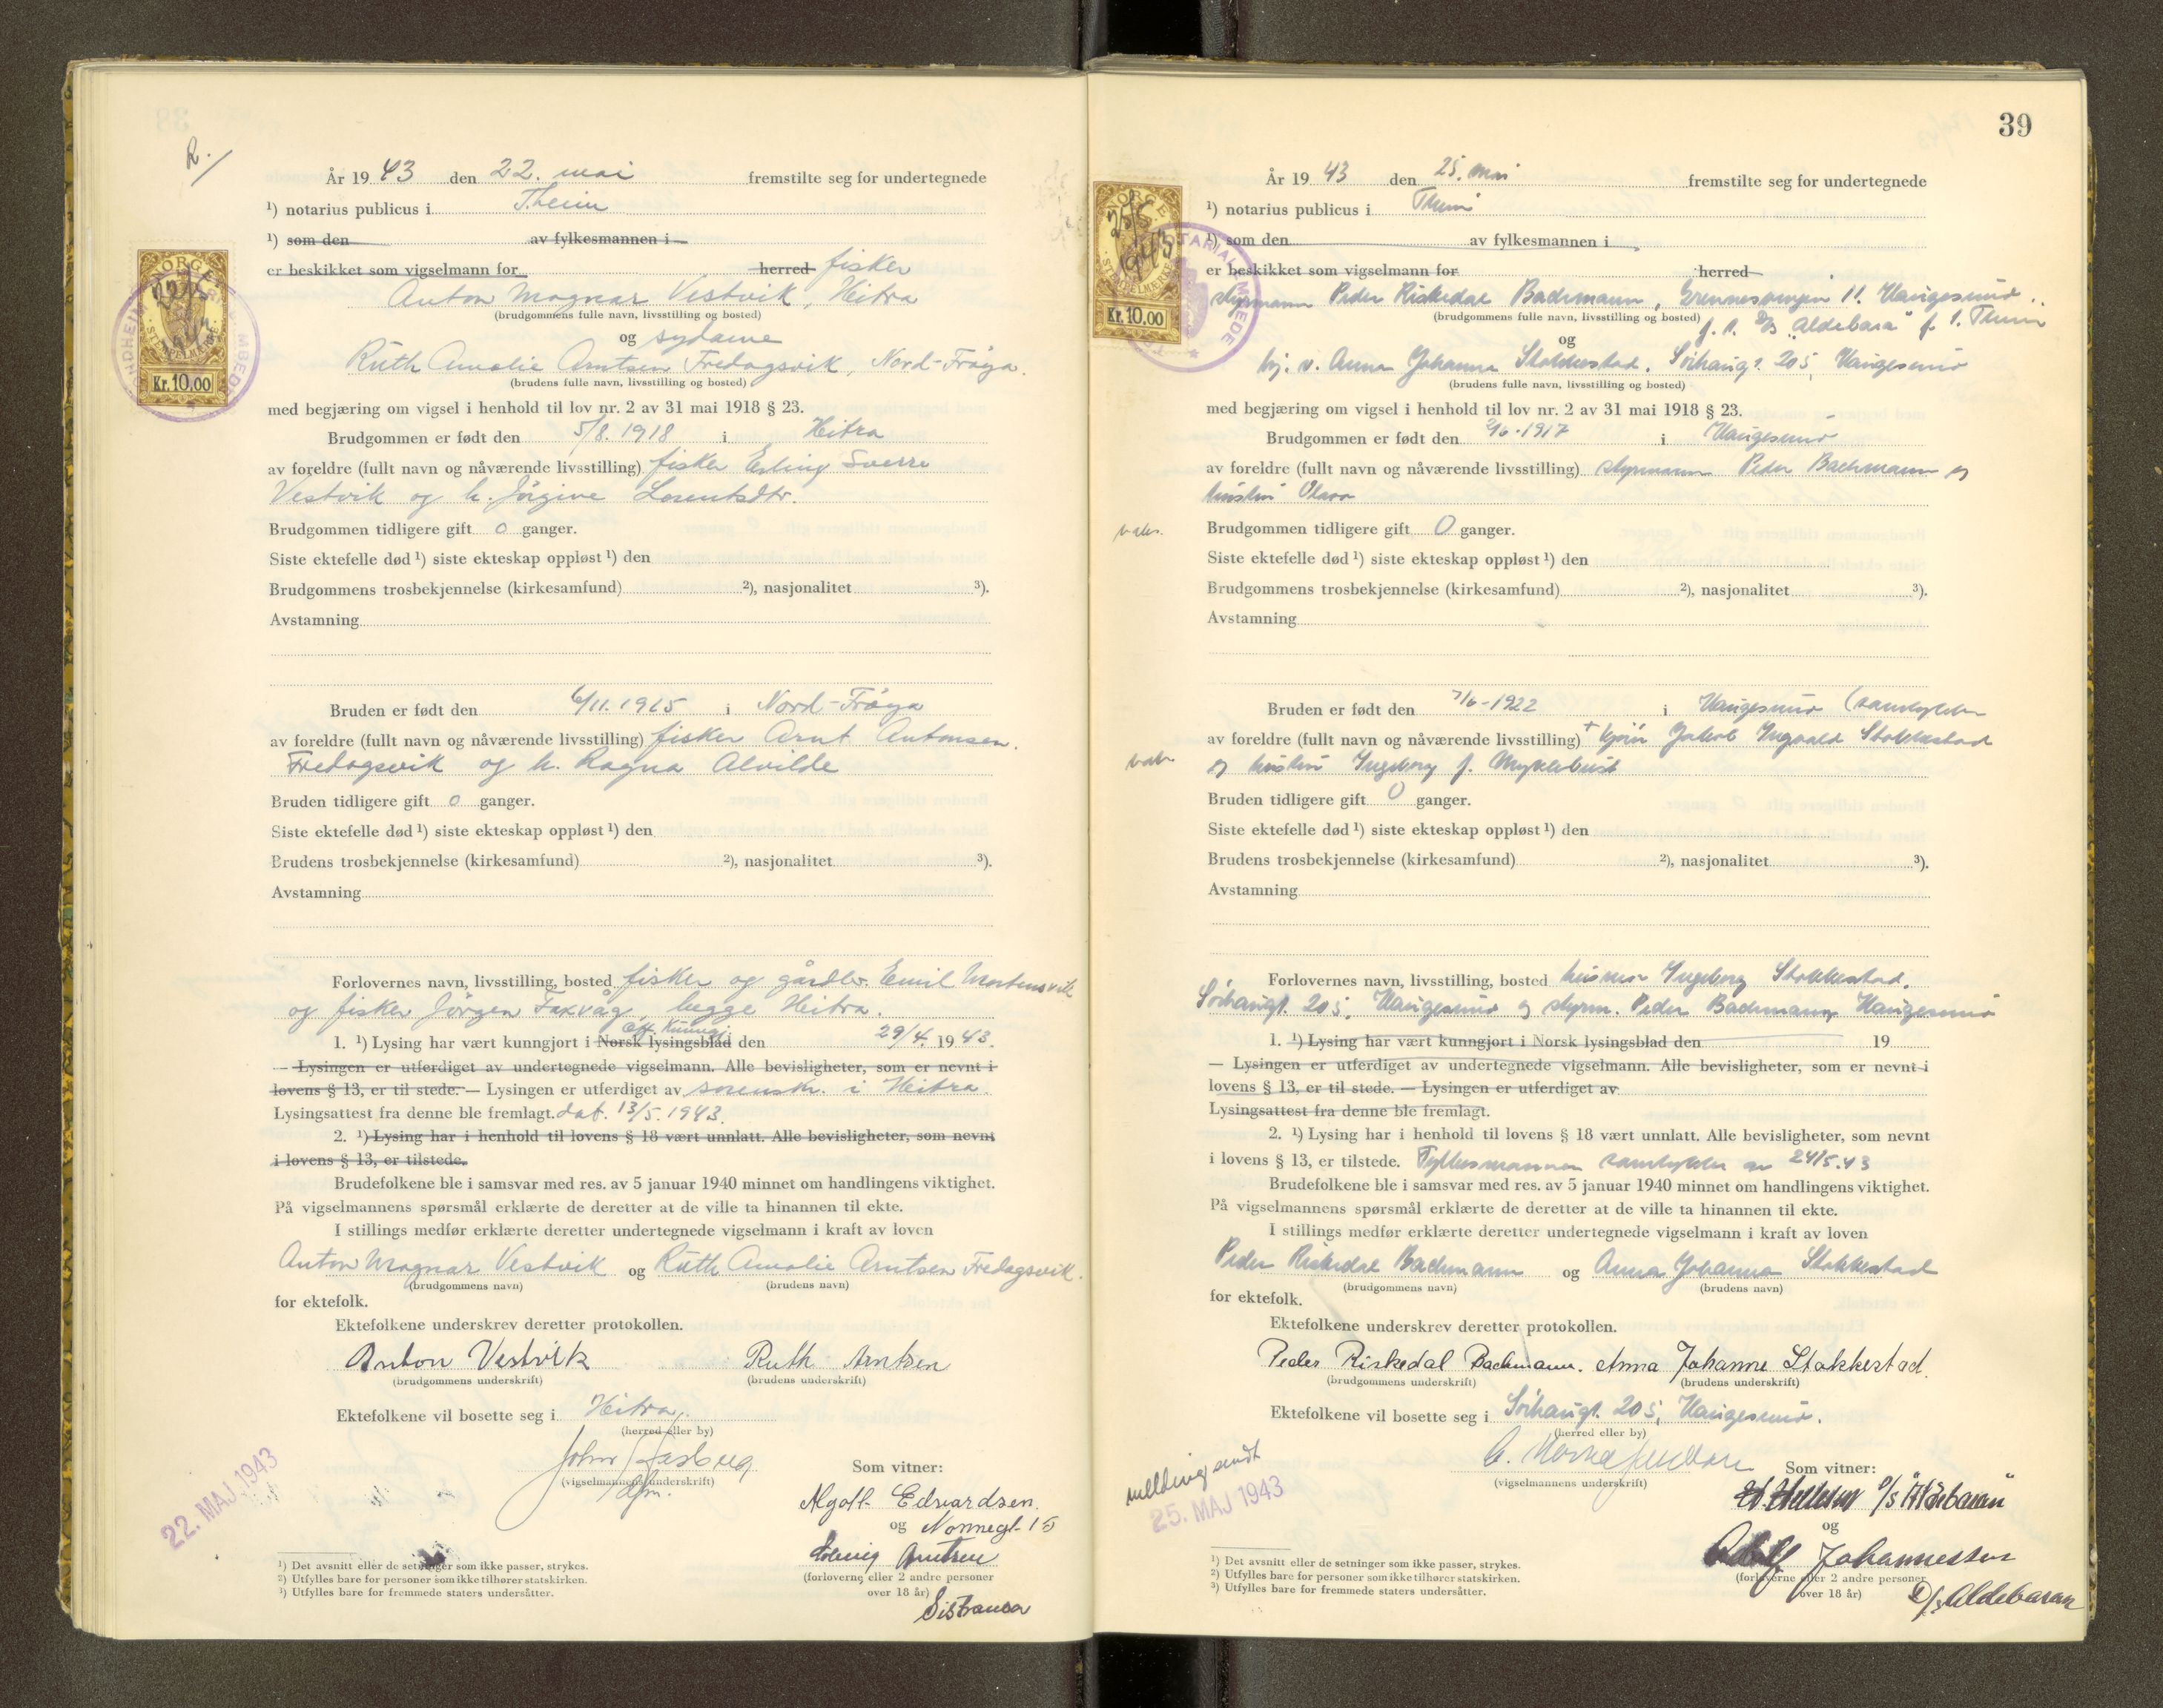 R./
År 19 43 den 22. mai fremstilte seg for undertegnede
¹) notarius publicus i T.heim
¹) som den av fylkesmannen i
er beskikket som vigselmann for herred fisker
Anton Magnar Vestvik, Hitra
(brudgommens fulle navn, livsstilling og bosted)
og sydame
Ruth Amalie Arntsen Fredagsvik, Nord-Frøya.
(brudens fulle navn, livsstilling og bosted)
med begjæring om vigsel i henhold til lov nr. 2 av 31 mai 1918 § 23.
Brudgommen er født den 5/8. 1918 i Hitra
av foreldre (fullt navn og nåværende livsstilling) fisker Erling Sverre
Vestvik og h. Jörgine Lorentsdtr.
Brudgommen tidligere gift 0 ganger.
Siste ektefelle død ¹) siste ekteskap oppløst ¹) den
Brudgommens trosbekjennelse (kirkesamfund) ²), nasjonalitet ³).
Avstamning
Bruden er født den 6/11. 1915 i Nord-Frøya
av foreldre (fullt navn og nåværende livsstilling) fisker Arnt Antonsen
Fredagsvik og h. Ragna Alvilde
Bruden tidligere gift 0 ganger.
Siste ektefelle død ¹) siste ekteskap oppløst ¹) den
Brudens trosbekjennelse (kirkesamfund) ²), nasjonalitet ³).
Avstamning
Forlovernes navn, livsstilling, bosted fisker og gårdbr. Emil Mortensvik
og fisker Jörgen Faxvåg, begge Hitra.
Off. Kunngj.
1. ¹) Lysing har vært kunngjort i Norsk lysingsblad den 29/4. 19 43.
— Lysingen er utferdiget av undertegnede vigselmann. Alle bevisligheter, som er nevnt i
lovens § 13, er til stede. — Lysingen er utferdiget av sorensk. i Hitra.
Lysingsattest fra denne ble fremlagt. dat. 13/5. 1943.
2. ¹) Lysing har i henhold til lovens § 18 vært unnlatt. Alle bevisligheter, som nevnt
i lovens § 13, er tilstede.
Brudefolkene ble i samsvar med res. av 5 januar 1940 minnet om handlingens viktighet.
På vigselmannens spørsmål erklærte de deretter at de ville ta hinannen til ekte.
I stillings medfør erklærte deretter undertegnede vigselmann i kraft av loven
Anton Magnar Vestvik og Ruth Amalie Arntsen Fredagsvik.
(brudgommens navn) (brudens navn)
for ektefolk.
Ektefolkene underskrev deretter protokollen.
Anton Vestvik Ruth Arntsen
(brudgommens underskrift) (brudens underskrift)
Ektefolkene vil bosette seg i Hitra.
(herred eller by)
John
(vigselmannens underskrift)
Som vitner:
Algott Edvardsen.
og Nonnegt. 15
Solveig Arntsen
(forloverne eller 2 andre personer
over 18 år)
Sistranda
22. MAJ 1943
¹) Det avsnitt eller de setninger som ikke passer, strykes.
²) Utfylles bare for personer som ikke tilhører statskirken.
³) Utfylles bare for fremmede staters undersåtter.
NORGE
STEMPELMERKE
Kr. 10.00
39
NORGE
25/5
1943
STEMPELMERKE
Kr. 10.00
År 19 43 den 25. mai fremstilte seg for undertegnede
¹) notarius publicus i Theim
¹) som den av fylkesmannen i
er beskikket som vigselmann for herred
styrmann Peder Riskedal Bachmann, Haugesund
(brudgommens fulle navn, livsstilling og bosted) f. t. D/S "Aldebara" f. t. Theim
og
hj. v. Anna Johanna Stakkestad. Sørhaugt. 205, Haugesund
(brudens fulle navn, livsstilling og bosted)
med begjæring om vigsel i henhold til lov nr. 2 av 31 mai 1918 § 23.
Brudgommen er født den 2/6-1917 i Haugesund
av foreldre (fullt navn og nåværende livsstilling) styrmann Peder Bachmann og
hustru Olava
vaks.
Brudgommen tidligere gift 0 ganger.
Siste ektefelle død ¹) siste ekteskap oppløst ¹) den
Brudgommens trosbekjennelse (kirkesamfund) ²), nasjonalitet ³).
Avstamning
Bruden er født den 7/6-1922 i Haugesund (samtykker
av foreldre (fullt navn og nåværende livsstilling) + Jakob Ingvald Stakkestad
og hustru Ingeborg f. Myklebust
Bruden tidligere gift 0 ganger.
Siste ektefelle død ¹) siste ekteskap oppløst ¹) den
Brudens trosbekjennelse (kirkesamfund) ²), nasjonalitet ³).
Avstamning
Forlovernes navn, livsstilling, bosted husmor Ingeborg Stakkestad.
Sørhaugt. 205, Haugesund og styrm. Peder Bachmann Haugesund
1. ¹) Lysing har vært kunngjort i Norsk lysingsblad den 19
— Lysingen er utferdiget av undertegnede vigselmann. Alle bevisligheter, som er nevnt i
lovens § 13, er til stede. — Lysingen er utferdiget av
Lysingsattest fra denne ble fremlagt.
2. ¹) Lysing har i henhold til lovens § 18 vært unnlatt. Alle bevisligheter, som nevnt
i lovens § 13, er tilstede. Fylkesmannen samtykke av 24/5.43
Brudefolkene ble i samsvar med res. av 5 januar 1940 minnet om handlingens viktighet.
På vigselmannens spørsmål erklærte de deretter at de ville ta hinannen til ekte.
I stillings medfør erklærte deretter undertegnede vigselmann i kraft av loven
Peder Riskedal Bachmann og Anna Johanna Stakkestad
(brudgommens navn) (brudens navn)
for ektefolk.
Ektefolkene underskrev deretter protokollen.
Peder Riskedal Bachmann. Anna Johanne Stakkestad.
(brudgommens underskrift) (brudens underskrift)
Ektefolkene vil bosette seg i Sørhaugt. 205, Haugesund.
(herred eller by)
(vigselmannens underskrift)
Som vitner:
D/S "Aldebaran"
og
Adolf Johannessen
(forloverne eller 2 andre personer
over 18 år) D/S Aldebaran
melding sendt
25. MAJ 1943
¹) Det avsnitt eller de setninger som ikke passer, strykes.
²) Utfylles bare for personer som ikke tilhører statskirken.
³) Utfylles bare for fremmede staters undersåtter.